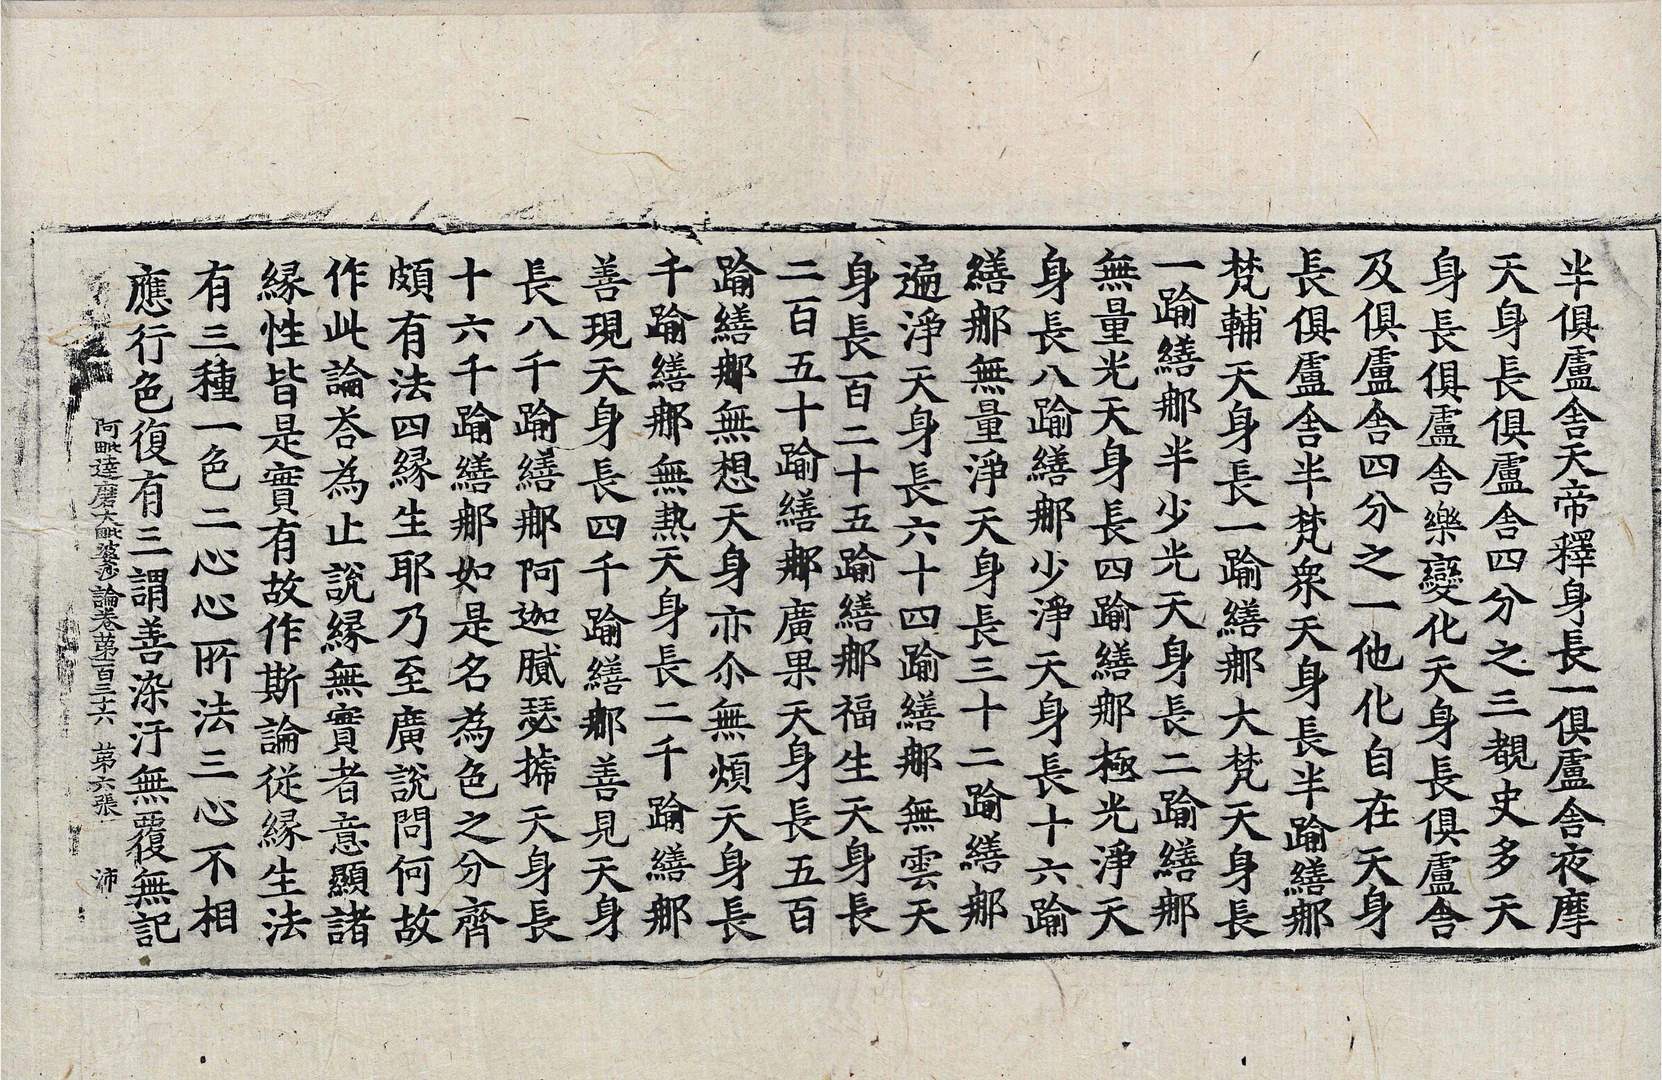 半俱盧舍天帝釋身長一俱盧舍夜摩
天身長俱盧舍四分之三覩史多天
身長俱盧舍樂變化天身長俱盧舍
及俱盧舍四分之一他化自在天身
長俱盧舍半梵衆天身長半踰繕那
梵輔天身長一踰繕那大梵天身長
一踰繕那半少光天身長二踰繕那
無量光天身長四踰繕那極光淨天
身長八踰繕那少淨天身長十六踰
繕那無量淨天身長三十二踰繕那
遍淨天身長六十四踰繕那無雲天
身長百二十五踰繕那福生天身長
二百五十踰繕那廣果天身長五百
踰繕那無想天身亦尒無煩天身長
千踰繕那無熱天身長二千踰繕那
善現天身長四千踰繕那善見天身
長八千踰繕那阿迦膩瑟搋天身長
十六千踰繕那如是名為色之分齊
頗有法四緣生耶乃至廣說問何故
作此論荅為止說緣無實者意顯諸
緣性皆是實有故作斯論從緣生法
有三種一色二心心所法三心不相
應行色復有三謂善染汙無覆無記
阿毗達磨大毗婆沙論卷第一百三十六　第六張　沛